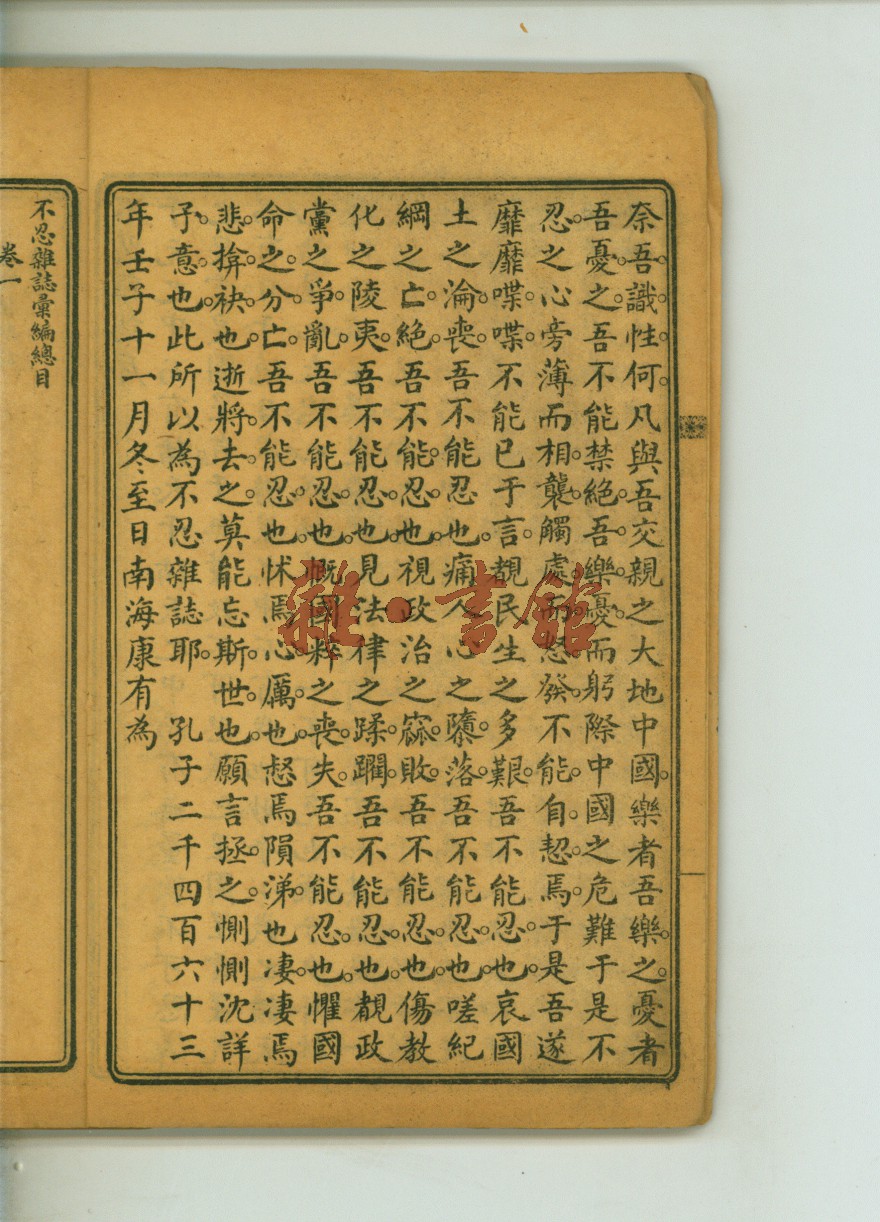 奈吾識性何凡與吾交親之大地中國樂者吾樂之憂者
吾憂之吾不能禁絕吾樂憂而躬際中國之危難于是不
忍之心旁薄而相襲觸處而怒發不能自恝焉于是吾遂
靡靡喋喋不能已于言覩民生之多艱吾不能忍也哀國
土之淪喪吾不能忍也痛人心之隳落吾不能忍也嗟紀
綱之亡絕吾不能忍也視政治之窳敗吾不能忍也傷教
化之陵夷吾不能忍也見法律之蹂躙吾不能忍也覩政
黨之爭亂吾不能忍也慨國粹之喪失吾不能忍也懼國
命之分亡吾不能忍也怵焉心厲也惄焉隕涕也凄凄焉
悲揜袂也逝將去之莫能忘斯世也願言拯之惻惻沈詳
予意也此所以為不忍雜誌耶 孔子二千四百六十三
年壬子十一月冬至日南海康有為
不忍雜誌彙編總目
卷一
雜·書館